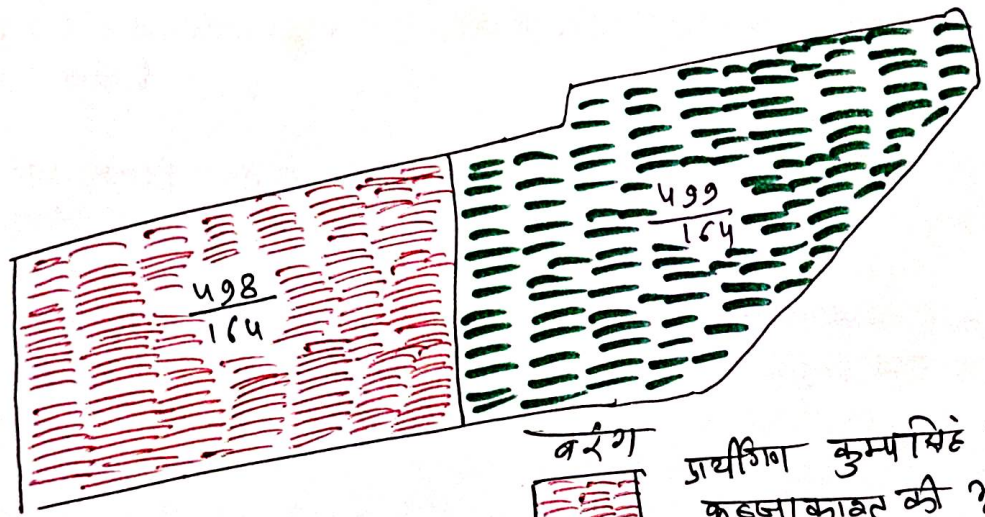 499
164
498
164
बरंग
प्रार्थीगण कुम्पसिंह
कब्जा काश्त की